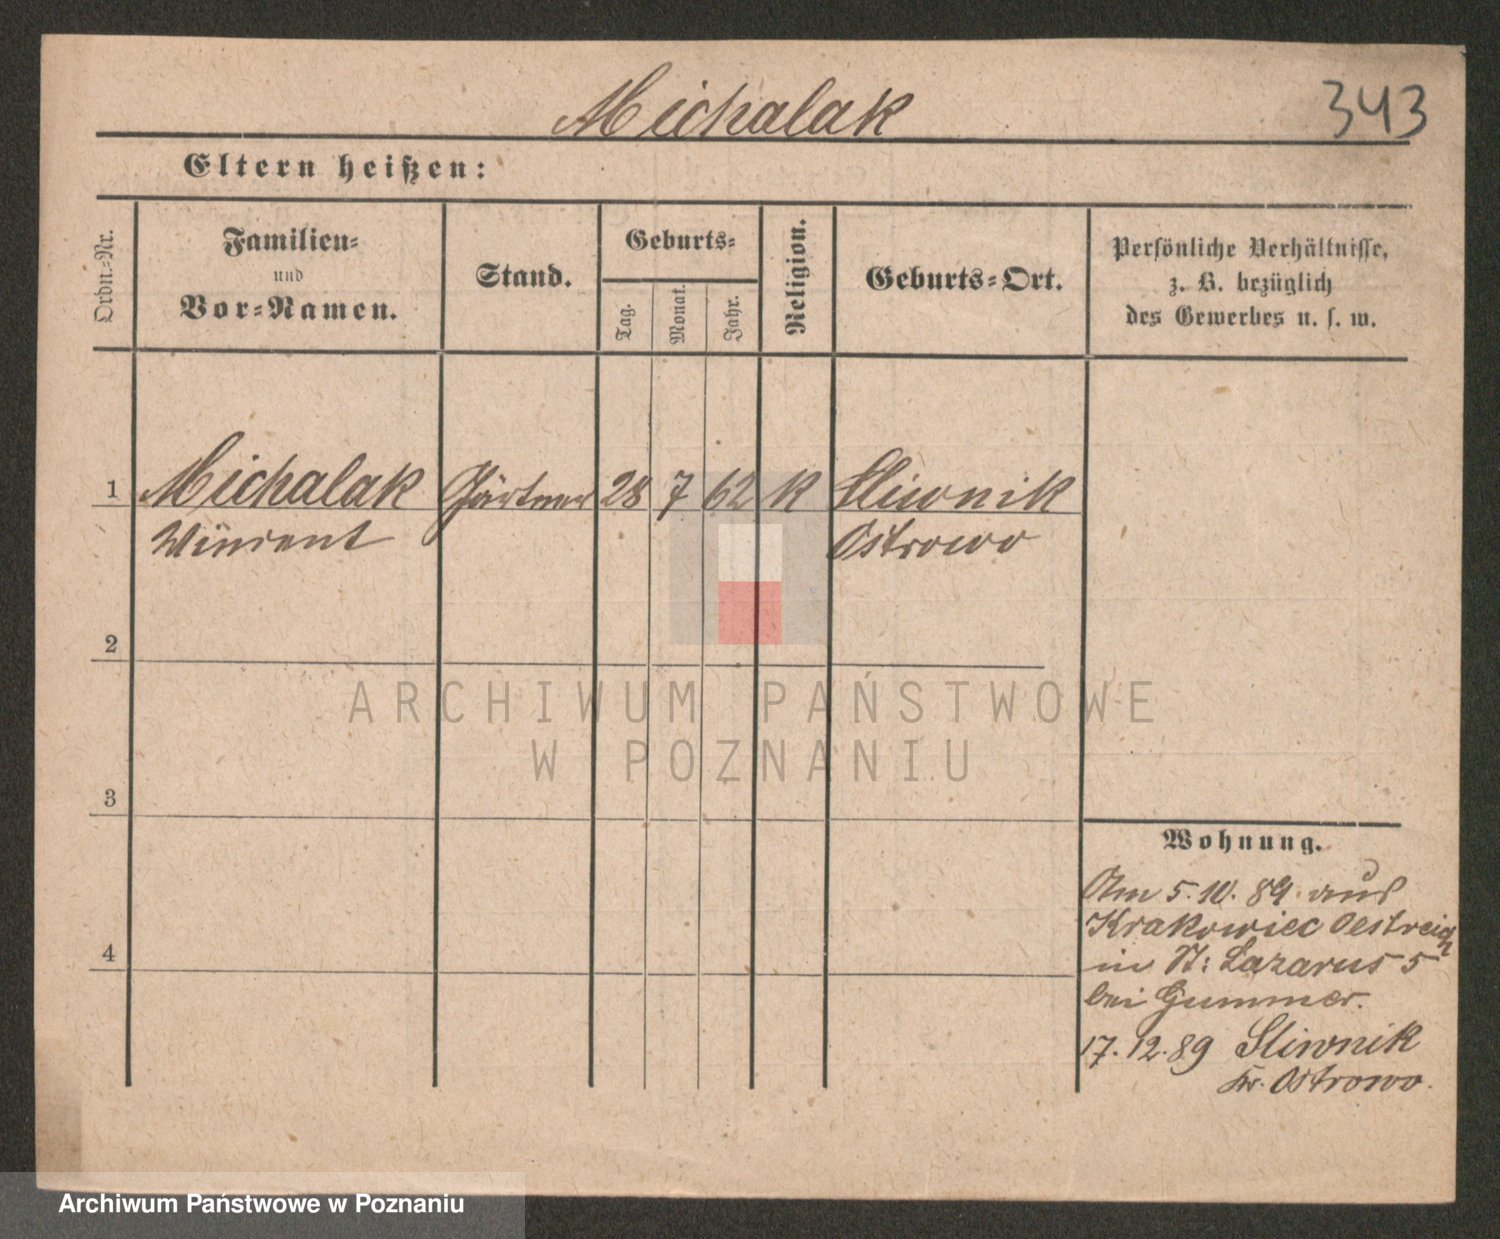 Michalak
343
Eltern heißen:
Ordn.-Nr.
Familien-
und
Vor-Namen.
Stand.
Geburts-
Tag.
Monat.
Jahr.
Religion.
Geburts-Ort.
Persönliche Verhältnisse,
z. B. bezüglich
des Gewerbes u. s. w.
1 Michalak Gärtner 28 7 62 K Sliwnik
Vincent Ostrowo
2
3
4
Wohnung.
Am 5.10.89 aus
Krakowiec Oestreich
in St: Lazarus 5
bei Gummer.
17.12.89 Sliwnik
Kr. Ostrowo.
ARCHIWUM PAŃSTWOWE
W POZNANIU
Archiwum Państwowe w Poznaniu